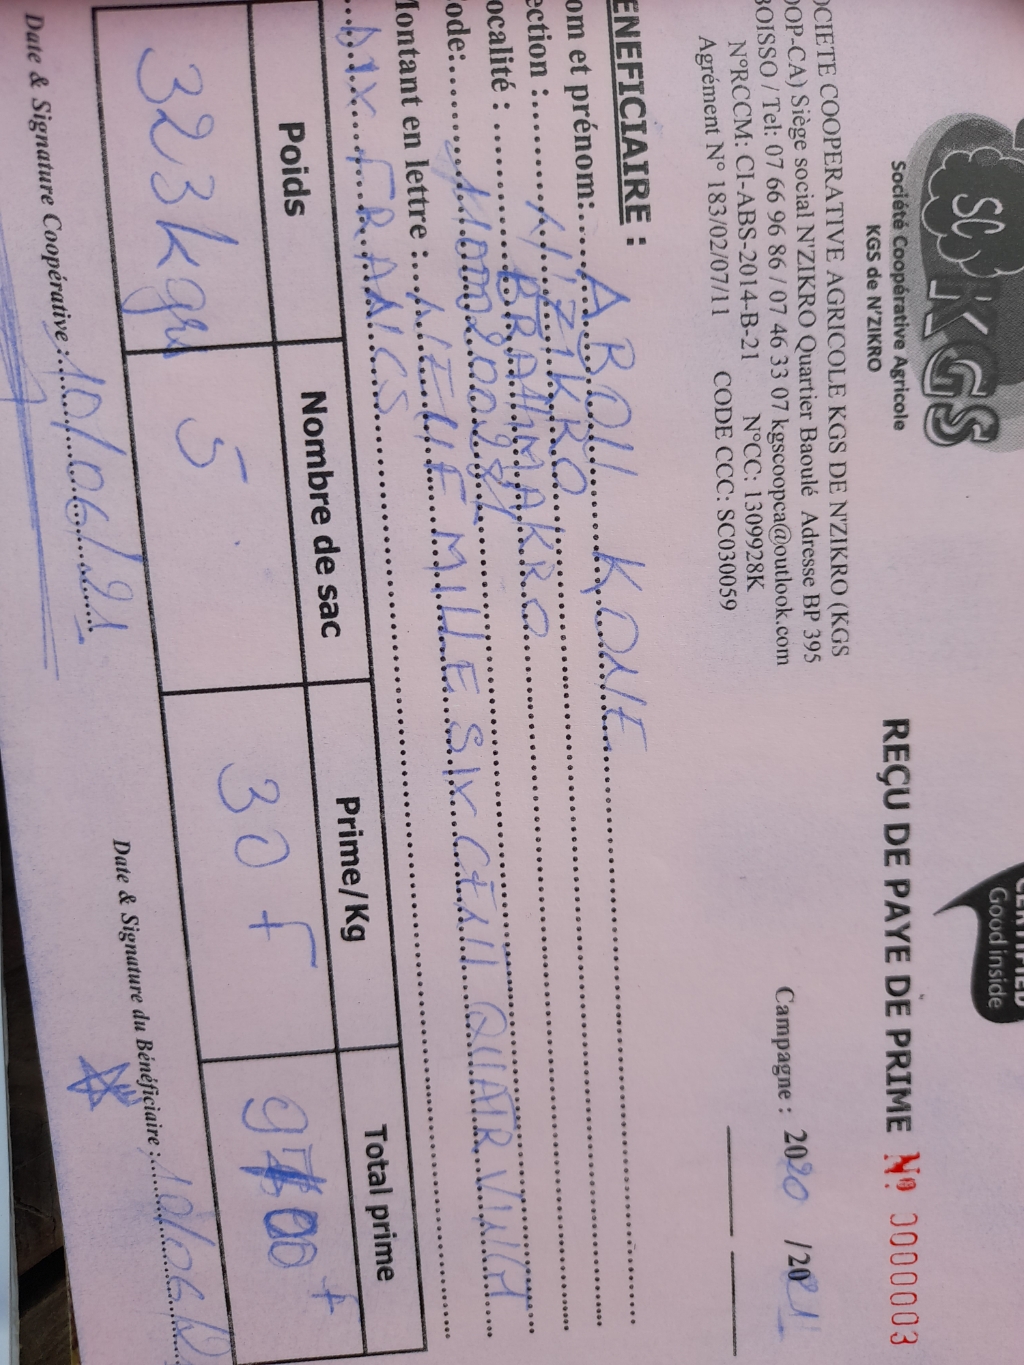 SC KGS
Société Coopérative Agricole
KGS de N'ZIKRO
CERTIFIED
Good inside
REÇU DE PAYE DE PRIME N° 0000003
OCIETE COOPERATIVE AGRICOLE KGS DE N'ZIKRO (KGS
OOP-CA) Siège social N'ZIKRO Quartier Baoulé Adresse BP 395
BOISSO / Tel: 07 66 96 86 / 07 46 33 07 kgscoopca@outlook.com
N°RCCM: CI-ABS-2014-B-21 N°CC: 1309928K
Agrément N° 183/02/07/11 CODE CCC: SC030059
Campagne : 2020 /2021
ENEFICIAIRE :
om et prénom: ABOU KONE
ection : N'ZIKRO
ocalité : BRAHIMAKRO
ode:
Montant en lettre : NEUF MILLE SIX CENT QUATR VINGT
DIX FRANCS
Poids Nombre de sac Prime/Kg Total prime
323 kgs 5 30 F
Date & Signature Coopérative : 10/06/21
Date & Signature du Bénéficiaire : 10/06/2